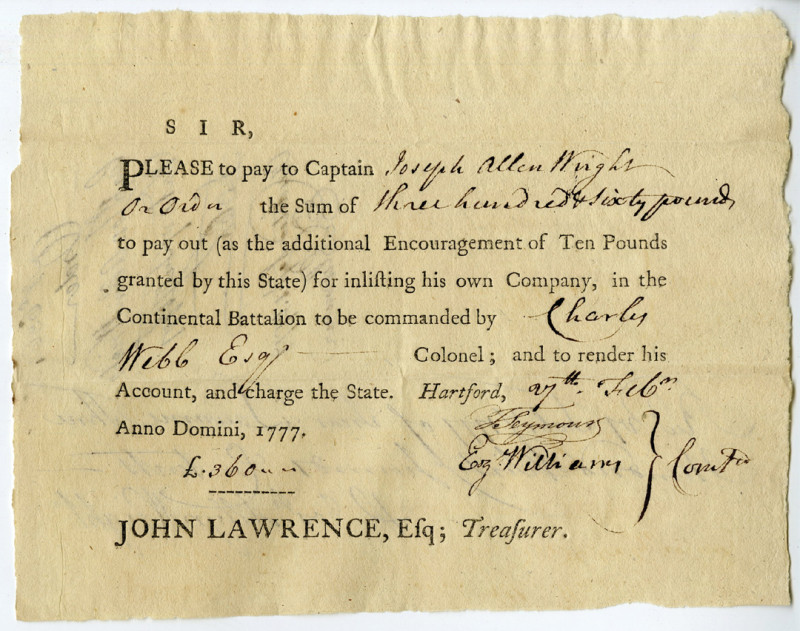 SIR,
PLEASE to pay to Captain Joseph Allen Wright
Or Order the Sum of three hundred & sixty pounds
to pay out (as the additional Encouragement of Ten Pounds
granted by this State) for inliſting his own Company, in the
Continental Battalion to be commanded by Charles
Webb Esqr Colonel; and to render his
Account, and charge the State. Hartford, 27th Febry
Anno Domini, 1777.
T Seymour
£.360
Ez Williams } Comtee
JOHN LAWRENCE, Eſq; Treaſurer.